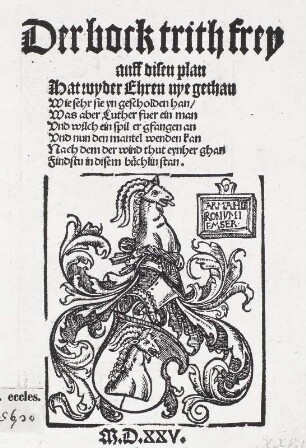 Der bock trith frey
auff disen plan
Hat wyder Ehren nye gethan
Wie sehr sie yn gescholden han/
Was aber Luther fuer ein man
Vnd wilch ein spil er gfangen an
Vnd nun den mantel wenden kan
Nach dem der wind thut eynher ghan
Findstu in disem büchlin stan.
ARMA HIE
RONYMI
EMSER.
. eccles.
5630
M.D.XXV.